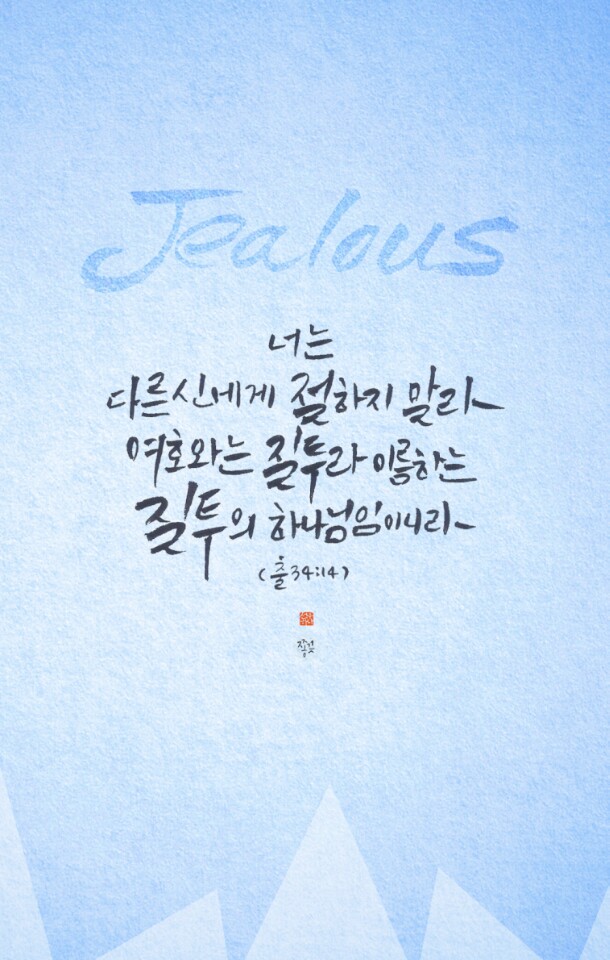 Jealous
너는
다른신에게 절하지 말라
여호와는 질투라 이름하는
질투의 하나님임이니라
(출34:14)